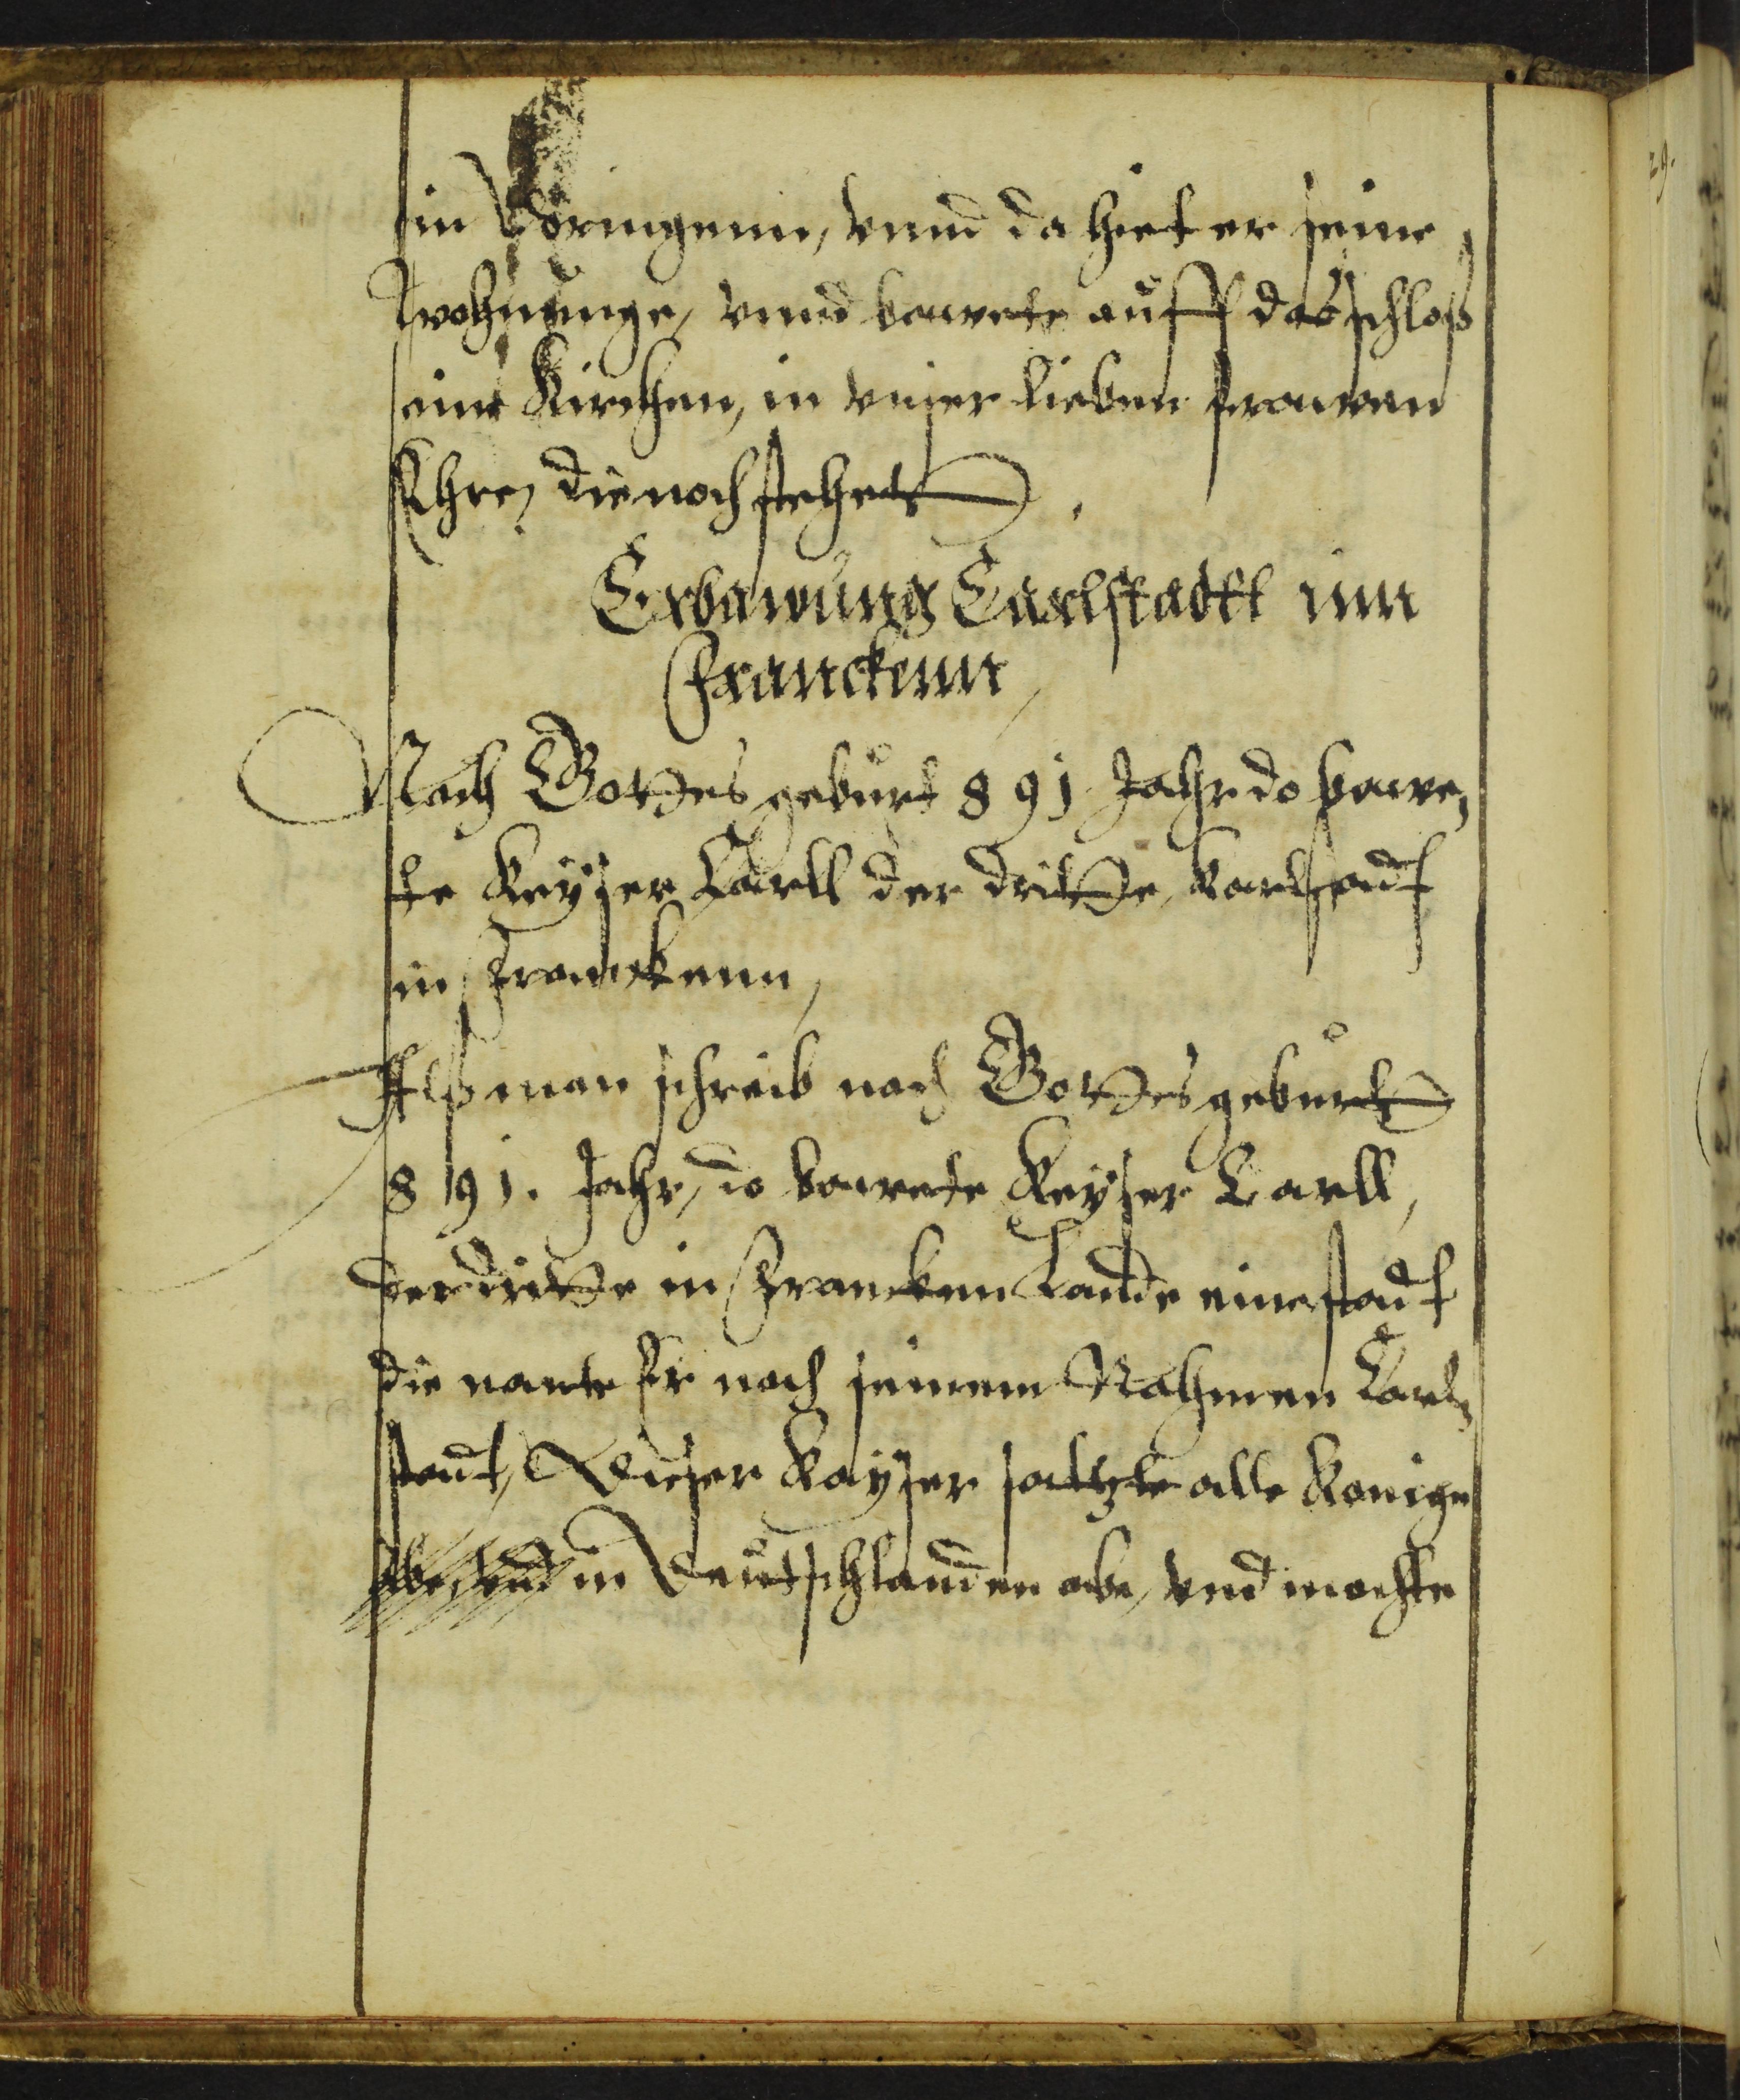 in Döringenn, vnnd da hiet er seine
wohnunge, vnnd bawete auff das schloß
eine Kirchen, in vnser lieben frawen
Ehre, die noch stehet.
Erbawung Carlstadtt inn
Franckenn,
Nach Gottes geburt 891 Jahr do bawe,
te Keyser Carll der dritte, Karlstadt
in Franckenn,
Alß man schreib nach Gottes geburt
891. Jahr, do bawete Keyser Carll,
der dritte in Francken Lande eine stadt
die nante Er nach seinem Nahmen Carl,
stadt, Dieser Kayser satzte alle Konige
in Deutschlanden abe, vnd machte
29.